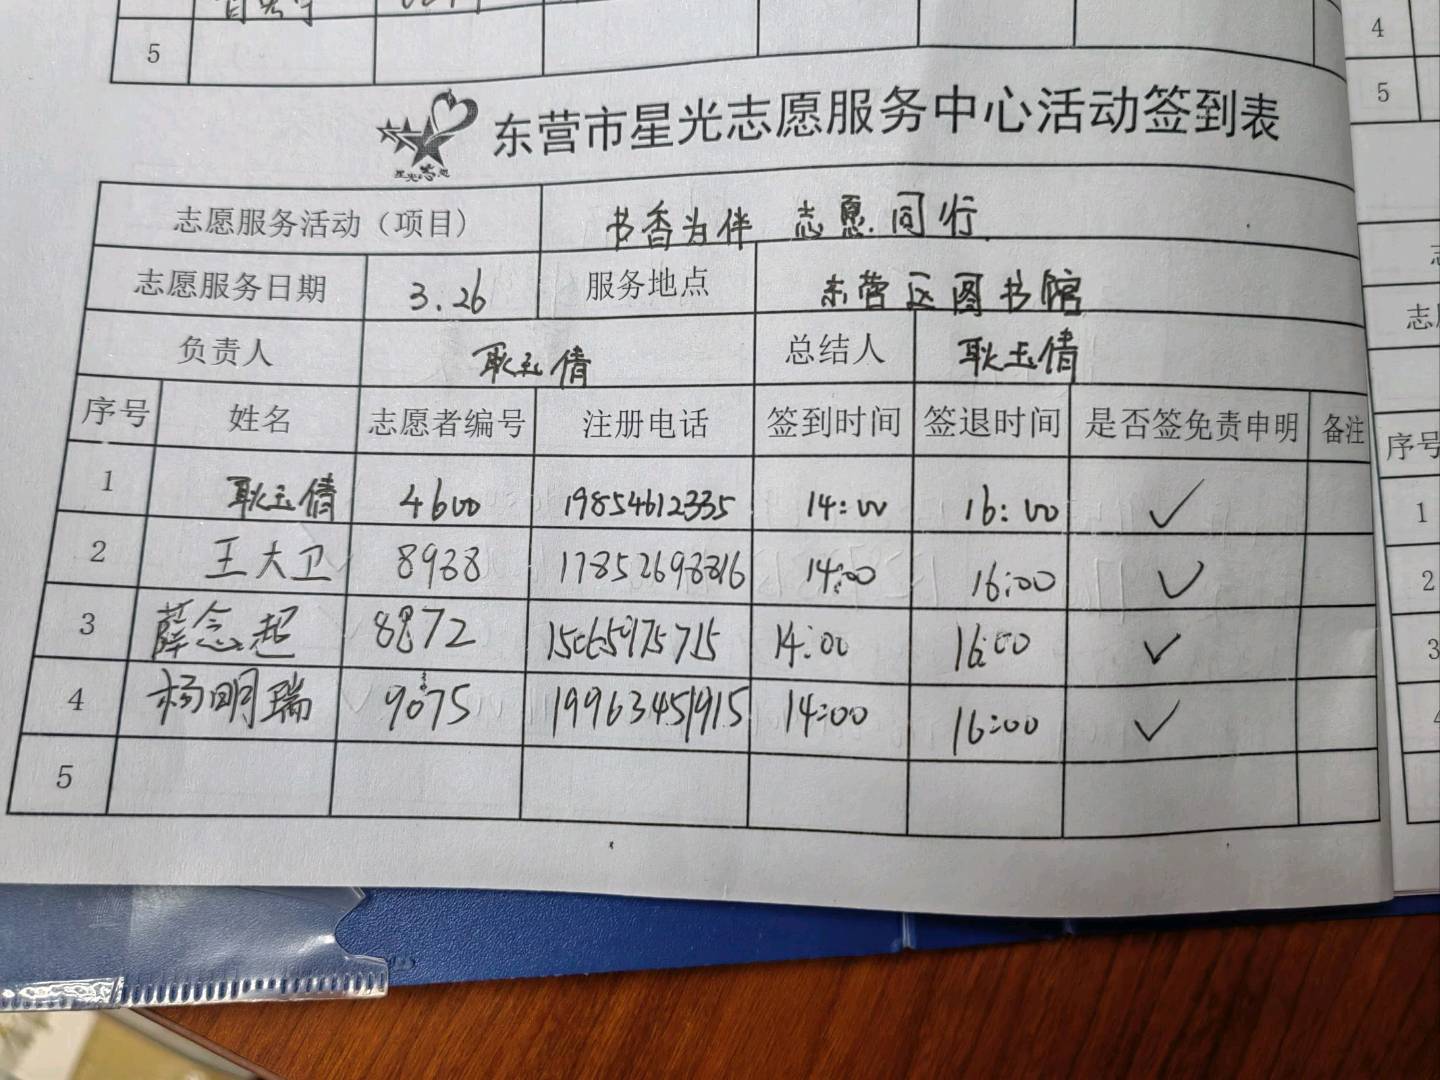 5
星光志愿
东营市星光志愿服务中心活动签到表
志愿服务活动（项目） 书香为伴 志愿同行
志愿服务日期 3.26 服务地点 东营区图书馆
负责人 耿玉倩 总结人 耿玉倩
序号 姓名 志愿者编号 注册电话 签到时间 签退时间 是否签免责申明 备注
1 耿玉倩 4600 19854612335 14:00 16:00 ✓
2 王大卫 8988 17852698816 14:00 16:00 ✓
3 薛念超 8872 15065975715 14:00 16:00 ✓
4 杨明瑞 9075 19963451915 14:00 16:00 ✓
5
4
5
志
序号
1
2
3
4